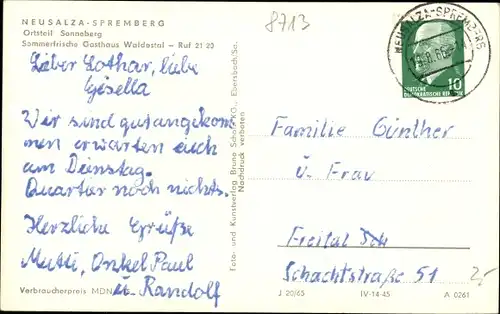 NEUSALZA-SPREMBERG
Ortsteil Sonneberg
Sommerfrische Gasthaus Waldestal – Ruf 21 20
Lieber Lothar, liebe
Gisella
Wir sind gut angekom
men erwarten euch
am Dienstag.
Quartier noch nichts.
Herzliche Grüße
Mutti, Onkel Paul
u. Randolf
Verbraucherpreis MDN
Foto- und Kunstverlag Bruno Scholz KG., Ebersbach/Sa.
Nachdruck verboten
8713
NEUSALZA-SPREMBERG
DEUTSCHE
DEMOKRATISCHE REPUBLIK
10
Familie Günther
u. Frau
Freital
Schachtstraße 51
2,-
J 20/65 IV-14-45 A 0261